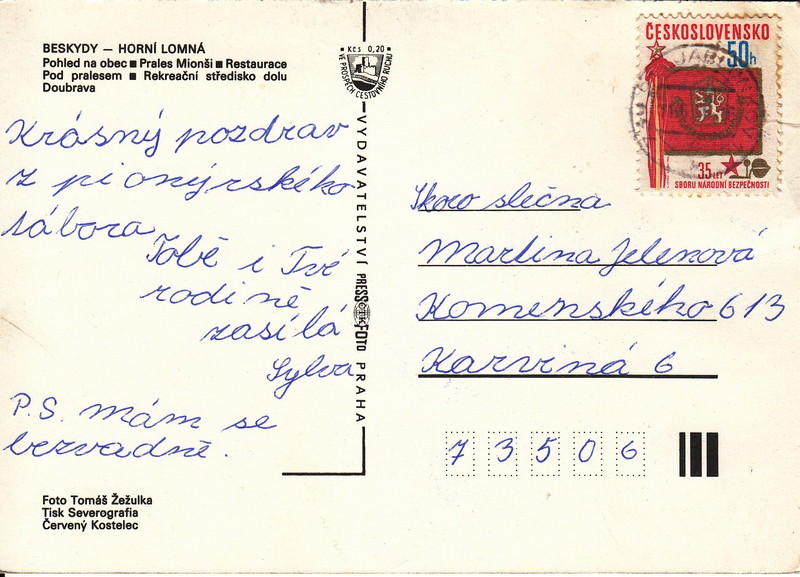 BESKYDY — HORNÍ LOMNÁ
Pohled na obec ■ Prales Mionší ■ Restaurace
Pod pralesem ■ Rekreační středisko dolu
Doubrava
Krásný pozdrav
z pionýrského
tábora
Tobě i Tvé
rodině
zasílá
Sylva
P.S. mám se
bezvadně.
Foto Tomáš Žežulka
Tisk Severografia
Červený Kostelec
Kčs 0,20
VE PROSPĚCH CESTOVNÍHO RUCHU
VYDAVATELSTVÍ PRESSFOTO PRAHA
ČTK
ČESKOSLOVENSKO
50h
35 LET
SBORU NÁRODNÍ BEZPEČNOSTI
Skoro slečna
Martina Jelenová
Komenského 613
Karvrná 6
73506